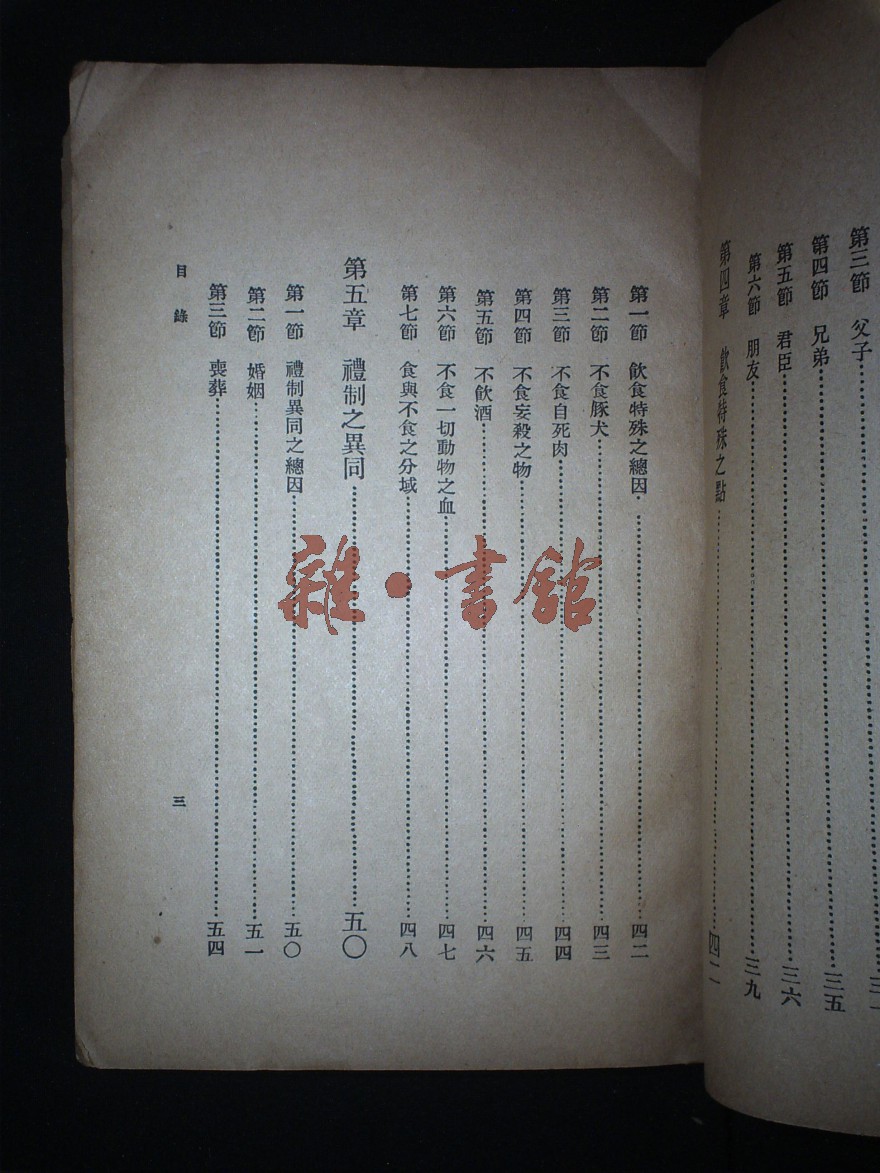 第三節 父子……三一
第四節 兄弟……三五
第五節 君臣……三六
第六節 朋友……三九
第四章 飲食特殊之點……四二
第一節 飲食特殊之總因……四二
第二節 不食豚犬……四三
第三節 不食自死肉……四四
第四節 不食妄殺之物……四五
第五節 不飲酒……四六
第六節 不食一切動物之血……四七
第七節 食與不食之分域……四八
第五章 禮制之異同……五〇
第一節 禮制異同之總因……五〇
第二節 婚姻……五一
第三節 喪葬……五四
目錄 三
雜·書館